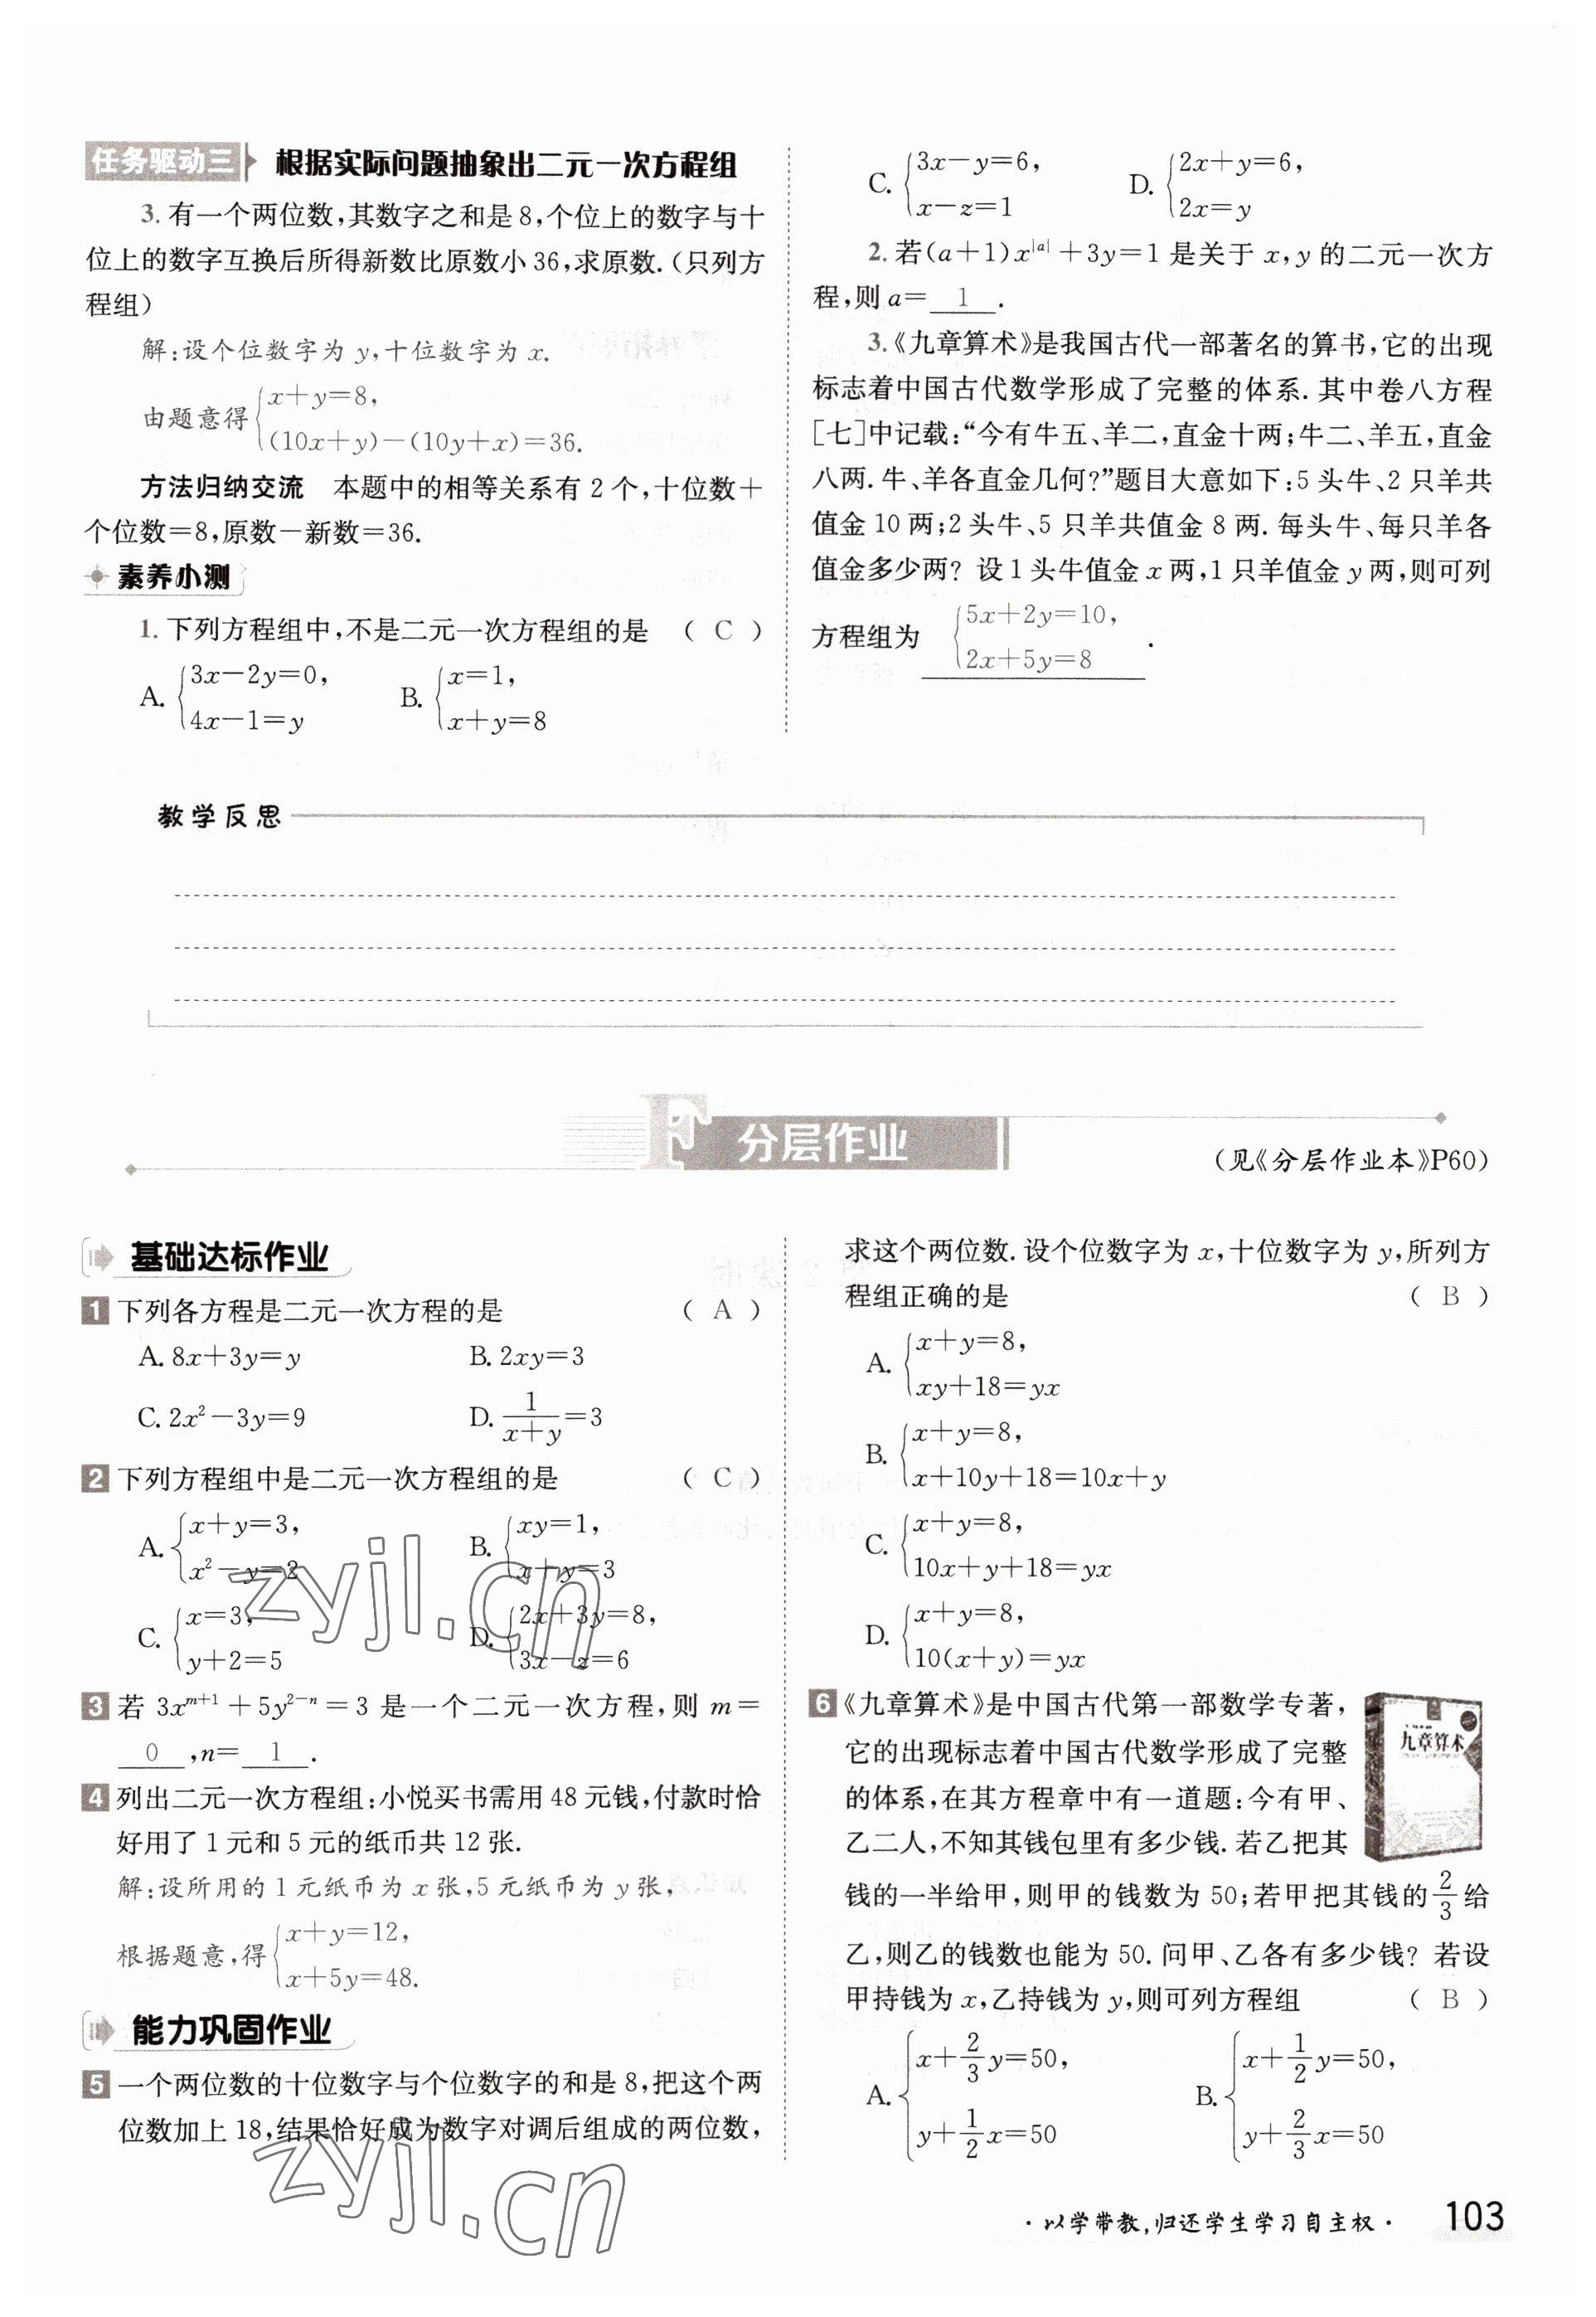 任务驱动三 根据实际问题抽象出二元一次方程组
3. 有一个两位数,其数字之和是8,个位上的数字与十
位上的数字互换后所得新数比原数小36,求原数.(只列方
程组)
解:设个位数字为 y,十位数字为 x.
由题意得{x+y=8,
(10x+y)-(10y+x)=36.
方法归纳交流 本题中的相等关系有2个,十位数+
个位数=8,原数-新数=36.
素养小测
1. 下列方程组中,不是二元一次方程组的是 ( C )
A. {3x-2y=0, 4x-1=y B. {x=1, x+y=8
C. {3x-y=6, x-z=1 D. {2x+y=6, 2x=y
2. 若(a+1)x^|a|+3y=1是关于 x,y 的二元一次方
程,则 a= 1 .
3.《九章算术》是我国古代一部著名的算书,它的出现
标志着中国古代数学形成了完整的体系. 其中卷八方程
[七]中记载:“今有牛五、羊二,直金十两;牛二、羊五,直金
八两. 牛、羊各直金几何?”题目大意如下:5头牛、2只羊共
值金10两;2头牛、5只羊共值金8两. 每头牛、每只羊各
值金多少两? 设1头牛值金 x 两,1只羊值金 y 两,则可列
方程组为 {5x+2y=10, 2x+5y=8 .
教学反思
F 分层作业
(见《分层作业本》P60)
基础达标作业
1 下列各方程是二元一次方程的是 ( A )
A. 8x+3y=y B. 2xy=3
C. 2x²-3y=9 D. 1/(x+y)=3
2 下列方程组中是二元一次方程组的是 ( C )
A. {x+y=3, x²-y=2 B. {xy=1, x+y=3
C. {x=3, y+2=5 D. {2x+3y=8, 3x-z=6
3 若 3x^(m+1)+5y^(2-n)=3 是一个二元一次方程,则 m=
0 ,n= 1 .
4 列出二元一次方程组:小悦买书需用48元钱,付款时恰
好用了1元和5元的纸币共12张.
解:设所用的1元纸币为 x 张,5元纸币为 y 张,
根据题意,得{x+y=12,
x+5y=48.
能力巩固作业
5 一个两位数的十位数字与个位数字的和是8,把这个两
位数加上18,结果恰好成为数字对调后组成的两位数,
求这个两位数. 设个位数字为 x,十位数字为 y,所列方
程组正确的是 ( B )
A. {x+y=8, xy+18=yx
B. {x+y=8, x+10y+18=10x+y
C. {x+y=8, 10x+y+18=yx
D. {x+y=8, 10(x+y)=yx
6 《九章算术》是中国古代第一部数学专著,
它的出现标志着中国古代数学形成了完整
的体系,在其方程章中有一道题:今有甲、
乙二人,不知其钱包里有多少钱. 若乙把其
钱的一半给甲,则甲的钱数为50;若甲把其钱的2/3给
乙,则乙的钱数也能为50. 问甲、乙各有多少钱? 若设
甲持钱为 x,乙持钱为 y,则可列方程组 ( B )
A. {x+2/3y=50, y+1/2x=50 B. {x+1/2y=50, y+2/3x=50
九章算术
zyjl.cn
zyjl.cn
·以学带教,归还学生学习自主权· 103